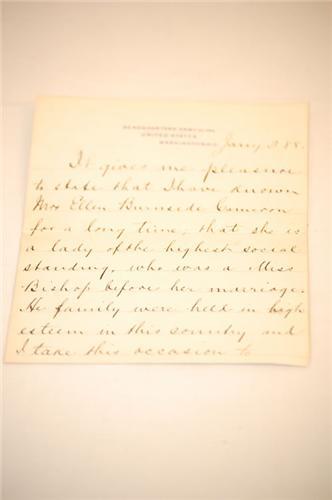 HEADQUARTERS ARMY OF THE
UNITED STATES
WASHINGTON
Jany 3. 88.
It gives me pleasure
to state that I have known
Mrs Ellen Burnside Cameron
for a long time, that she is
a lady of the highest social
standing, who was a Miss
Bishop before her marriage.
He family were held in high
esteem in this country and
I take this occasion to